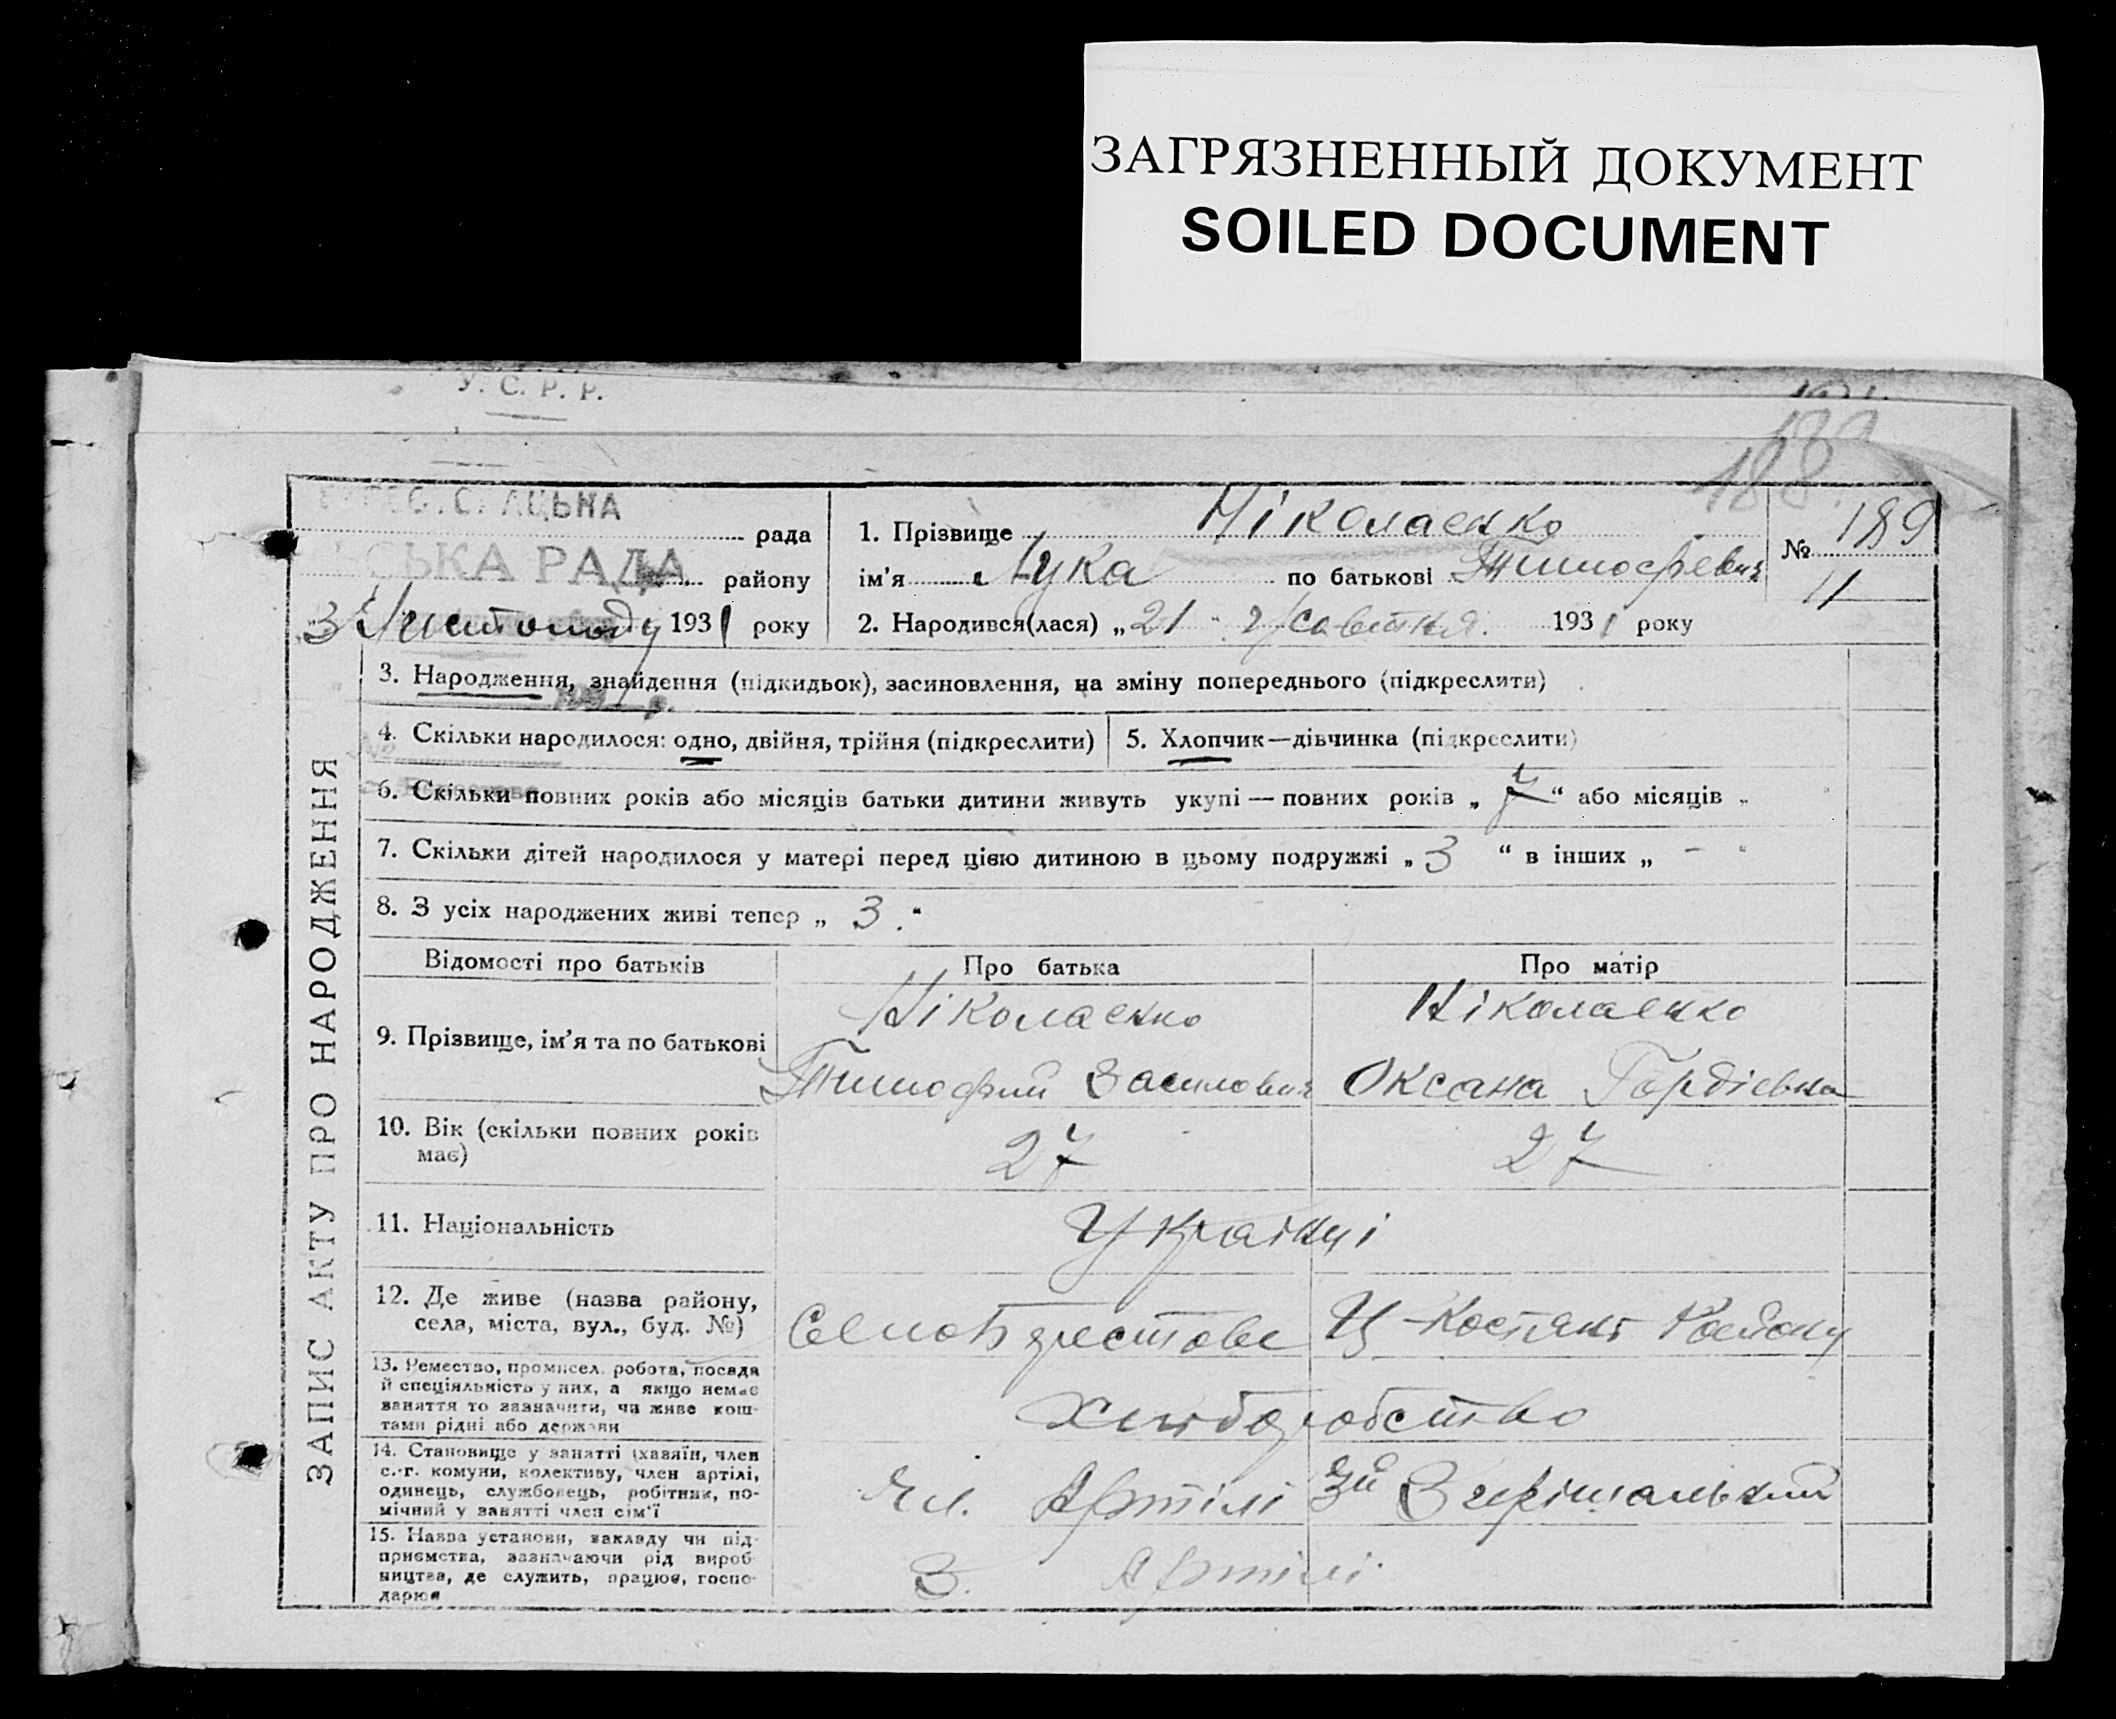 ЗАГРЯЗНЕННЫЙ ДОКУМЕНТ
SOILED DOCUMENT
У. С. Р. Р.
188
АЦЬНА рада
СЬКА РАДА району
3 Листопаду 1931 року
1. Прізвище Ніколаенко
ім'я Лука по батькові Тимофевич
№ 189
11
2. Народився(лася) „21" Жовтня 1931 року
ЗАПИС АКТУ ПРО НАРОДЖЕННЯ
3. Народження, знайдення (підкидьок), засиновлення, на зміну попереднього (підкреслити)
4. Скільки народилося: одно, двійня, трійня (підкреслити)
5. Хлопчик—дівчинка (підкреслити)
6. Скільки повних років або місяців батьки дитини живуть укупі — повних років „7“ або місяців „ "
7. Скільки дітей народилося у матері перед цією дитиною в цьому подружжі „3“ в інших „ - "
8. З усіх народжених живі тепер „ 3 "
Відомості про батьків Про батька Про матір
9. Прізвище, ім'я та по батькові
Ніколаенко
Тимофий Василович
Ніколаенко
Оксана Гордіевна
10. Вік (скільки повних років має)
27 27
11. Національність
Українці
12. Де живе (назва району, села, міста, вул., буд. №)
Село Берестове Костянт Району
13. Ремество, промисел, робота, посада й спеціяльність у них, а якщо немає заняття то зазначити, чи живе коштами рідні або держави
Хліборобство
14. Становище у занятті (хазяїн, член с.-г. комуни, колективу, член артілі, одинець, службовець, робітник, помічний у занятті член сім'ї
Чл. Артілі
15. Назва установи, закладу чи підприємства, зазначаючи рід виробництва, де служить, працює, господарює
З. Артілі